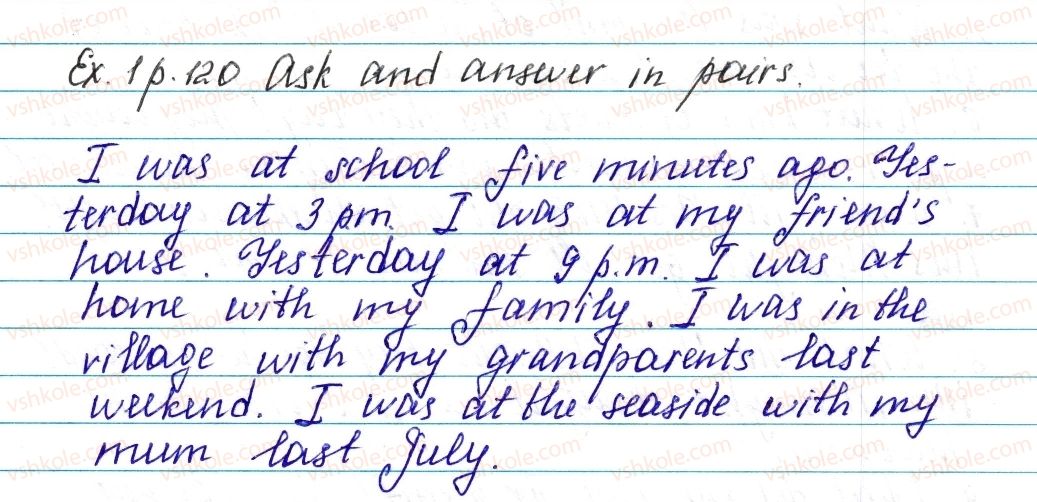 Ex. 1 p. 120 Ask and answer in pairs.
I was at school five minutes ago. Yes-
terday at 3 p.m. I was at my friend's
house. Yesterday at 9 p.m. I was at
home with my family. I was in the
village with my grandparents last
weekend. I was at the seaside with my
mum last July.